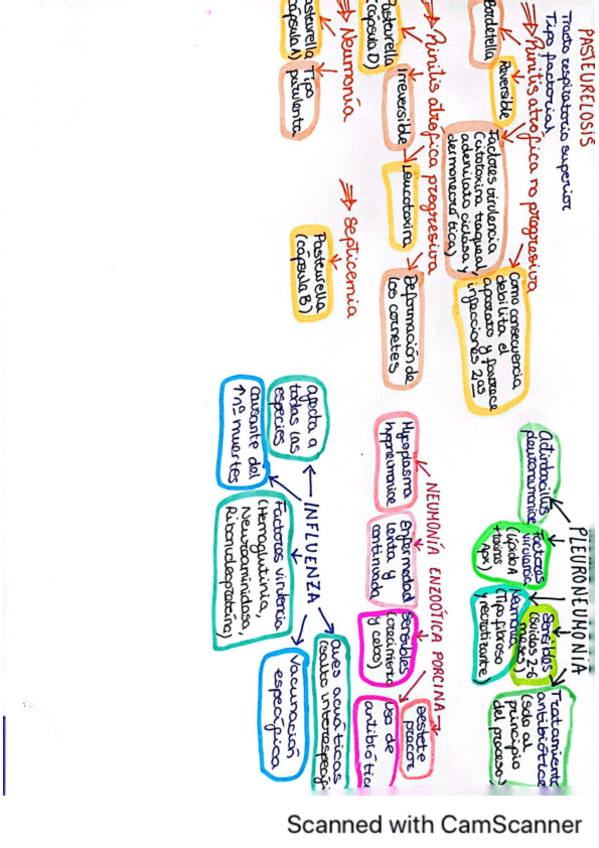 PASTEURELOSIS
Tracto respiratorio superior
Tipo factorial
⇒ Rinitis atrófica no progresiva
Bordetella
Reversible
Factores virulencia
(citotoxina traqueal,
adenilato ciclasa y
dermonecrótica)
Como consecuencia
debilita el
aparato y favorece
infecciones 2as
⇒ Rinitis atrófica progresiva
Pasteurella
(cápsula D)
Irreversible
Leucotoxina
Deformación de
los cornetes
⇒ Neumonía
Pasteurella
(cápsula A)
Tipo
purulenta
⇒ Septicemia
Pasteurella
(cápsula B)
PLEURONEUMONIA
Actinobacillus
pleuroneumoniae
Factores
virulencia
(Lípido A
+ toxinas
Apx)
Sensibles
(suidos 2-6
meses)
Neumonía
(Tipo fibroso
necrotizante)
Tratamiento
antibiótico
(solo al
principio
del proceso)
NEUMONÍA ENZOÓTICA PORCINA
Mycoplasma
hyopneumoniae
Enfermedad
lenta y
continuada
Sensibles
(crecimiento
y cebo)
Destete
precoz
Uso de
antibiótico
INFLUENZA
afecta a
todas las
especies
causante del
↑nº muertes
Factores virulencia
(Hemaglutinina,
Neuroaminidasa,
Ribonucleoproteína)
Aves acuáticas
(salto interespecífi
Vacunación
específica
Scanned with CamScanner